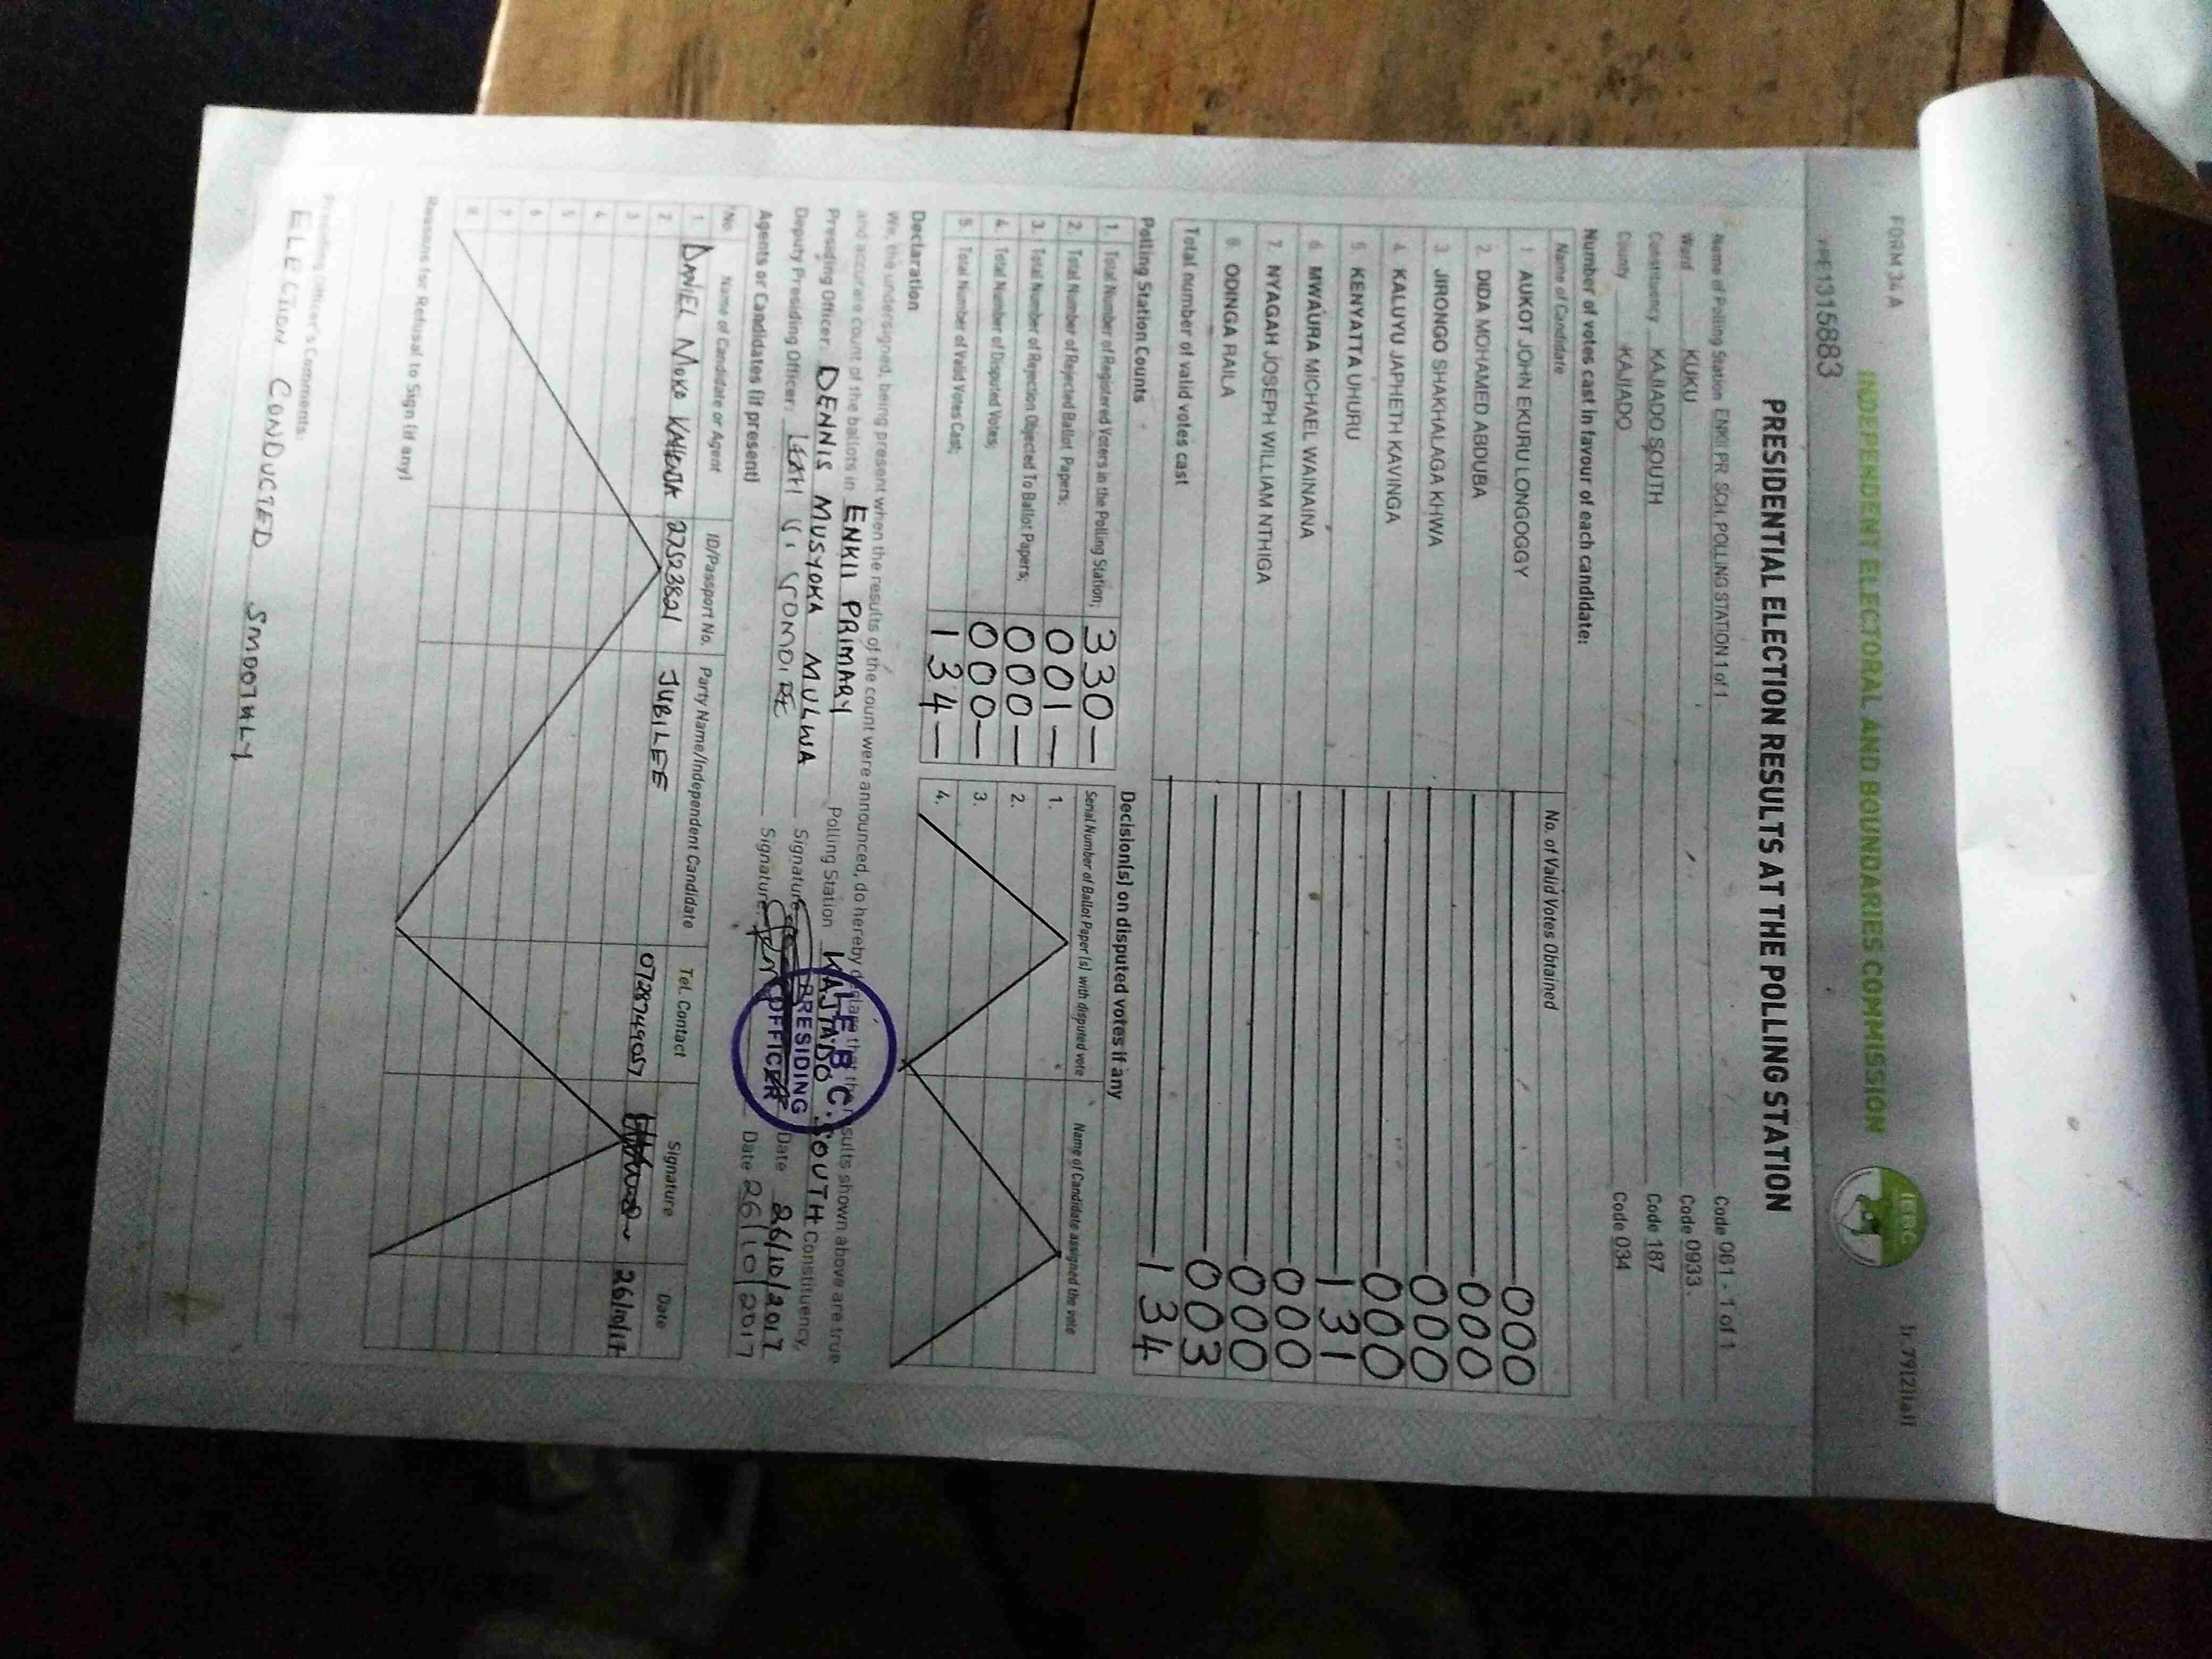 FORM 34 A
INDEPENDENT ELECTORAL AND BOUNDARIES COMMISSION
IEBC
1315883
PRESIDENTIAL ELECTION RESULTS AT THE POLLING STATION
Name of Polling Station ENKII PR. SCH. POLLING STATION 1 of 1 Code 061 - 1 of 1
Ward KUKU Code 0933
Constituency KAJIADO SOUTH Code 187
County KAJIADO Code 034
Number of votes cast in favour of each candidate:
Name of Candidate No. of Valid Votes Obtained
1 AUKOT JOHN EKURU LONGOGGY 000
2. DIDA MOHAMED ABDUBA 000
3. JIRONGO SHAKHALAGA KHWA 000
4. KALUYU JAPHETH KAVINGA 000
5. KENYATTA UHURU 131
6. MWAURA MICHAEL WAINAINA 000
7. NYAGAH JOSEPH WILLIAM NTHIGA 000
8. ODINGA RAILA 003
Total number of valid votes cast 134
Polling Station Counts
1. Total Number of Registered Voters in the Polling Station; 330
2. Total Number of Rejected Ballot Papers; 001
3. Total Number of Rejection Objected To Ballot Papers; 000
4. Total Number of Disputed Votes; 000
5. Total Number of Valid Votes Cast; 134
Decision(s) on disputed votes if any
Serial Number of Ballot Paper (s) with disputed vote Name of Candidate assigned the vote
1.
2.
3.
4.
Declaration
We, the undersigned, being present when the results of the count were announced, do hereby declare that the results shown above are true
and accurate count of the ballots in ENKII PRIMARY Polling Station KAJIADO SOUTH Constituency,
Presiding Officer: DENNIS MUSYOKA MULWA Signature Date 26/10/2017
Deputy Presiding Officer: Signature: Date 26/10/2017
I.E.B.C.
PRESIDING
OFFICER
Agents or Candidates (if present)
No. Name of Candidate or Agent ID/Passport No. Party Name/Independent Candidate Tel. Contact Signature Date
1. DANIEL MOKO 22523821 JUBILEE 0728749057 26/10/17
2.
3
4
5
6
7
8
Reasons for Refusal to Sign (if any)
Presiding Officer's Comments:
ELECTION CONDUCTED SMOOTHLY